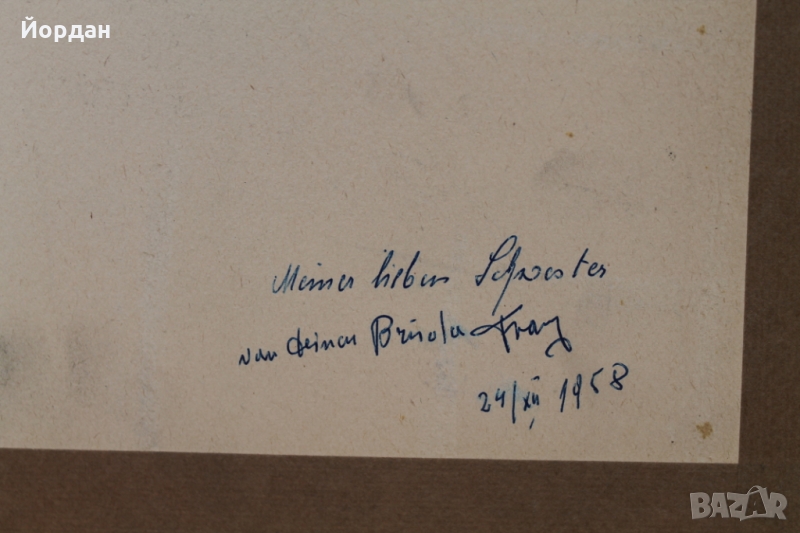 Йордан
Meiner lieben Schwester
von deinem Bruder Franz
24/XII 1958
BAZAR